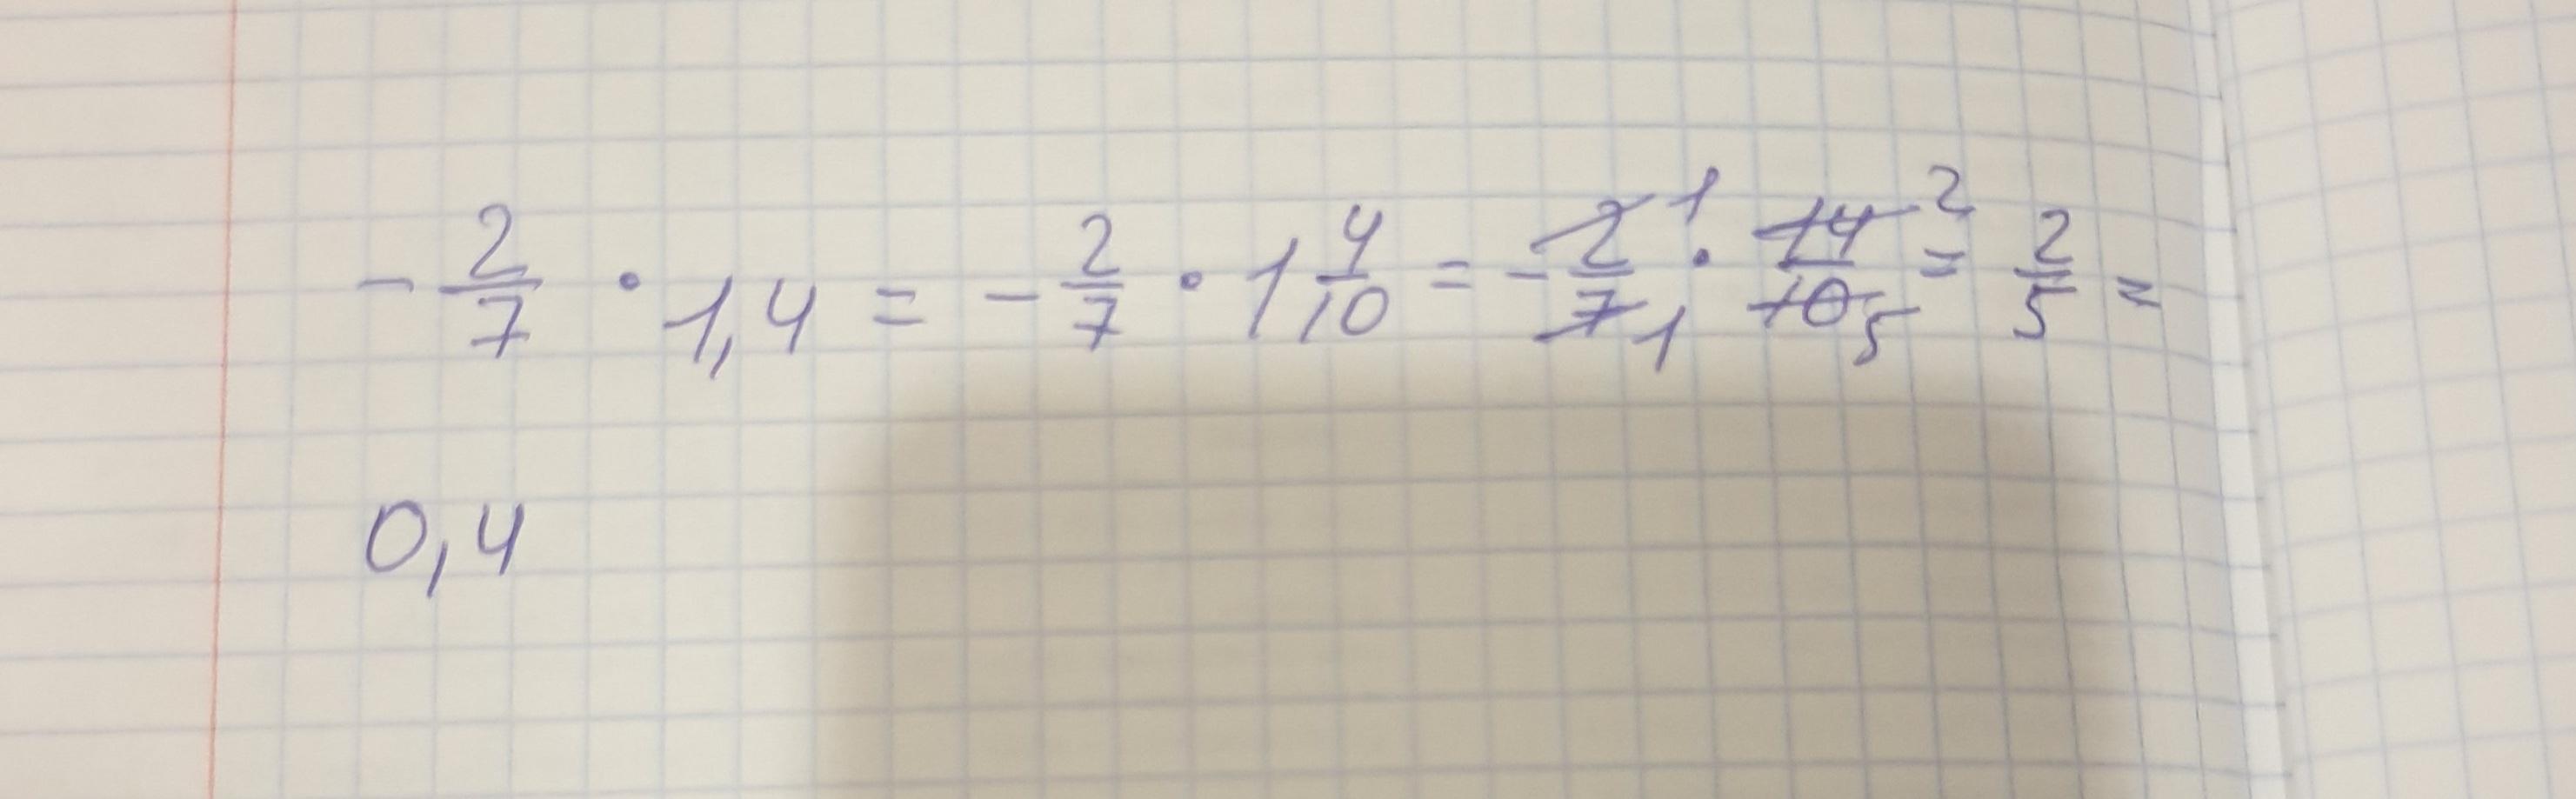 - 2/7 · 1,4 = - 2/7 · 1 4/10 = - 2/7 1 1 · 14/10 2 5 = 2/5 =
0,4